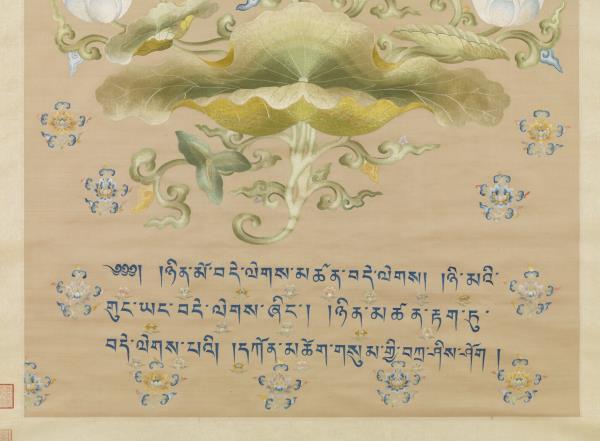 ༄༅༅། །ཉིན་མོ་བདེ་ལེགས་མཚན་བདེ་ལེགས། །ཉི་མའི་
གུང་ཡང་བདེ་ལེགས་ཤིང་། །ཉིན་མཚན་རྟག་ཏུ་
བདེ་ལེགས་པའི། །དཀོན་མཆོག་གསུམ་གྱི་བཀྲ་ཤིས་ཤོག །